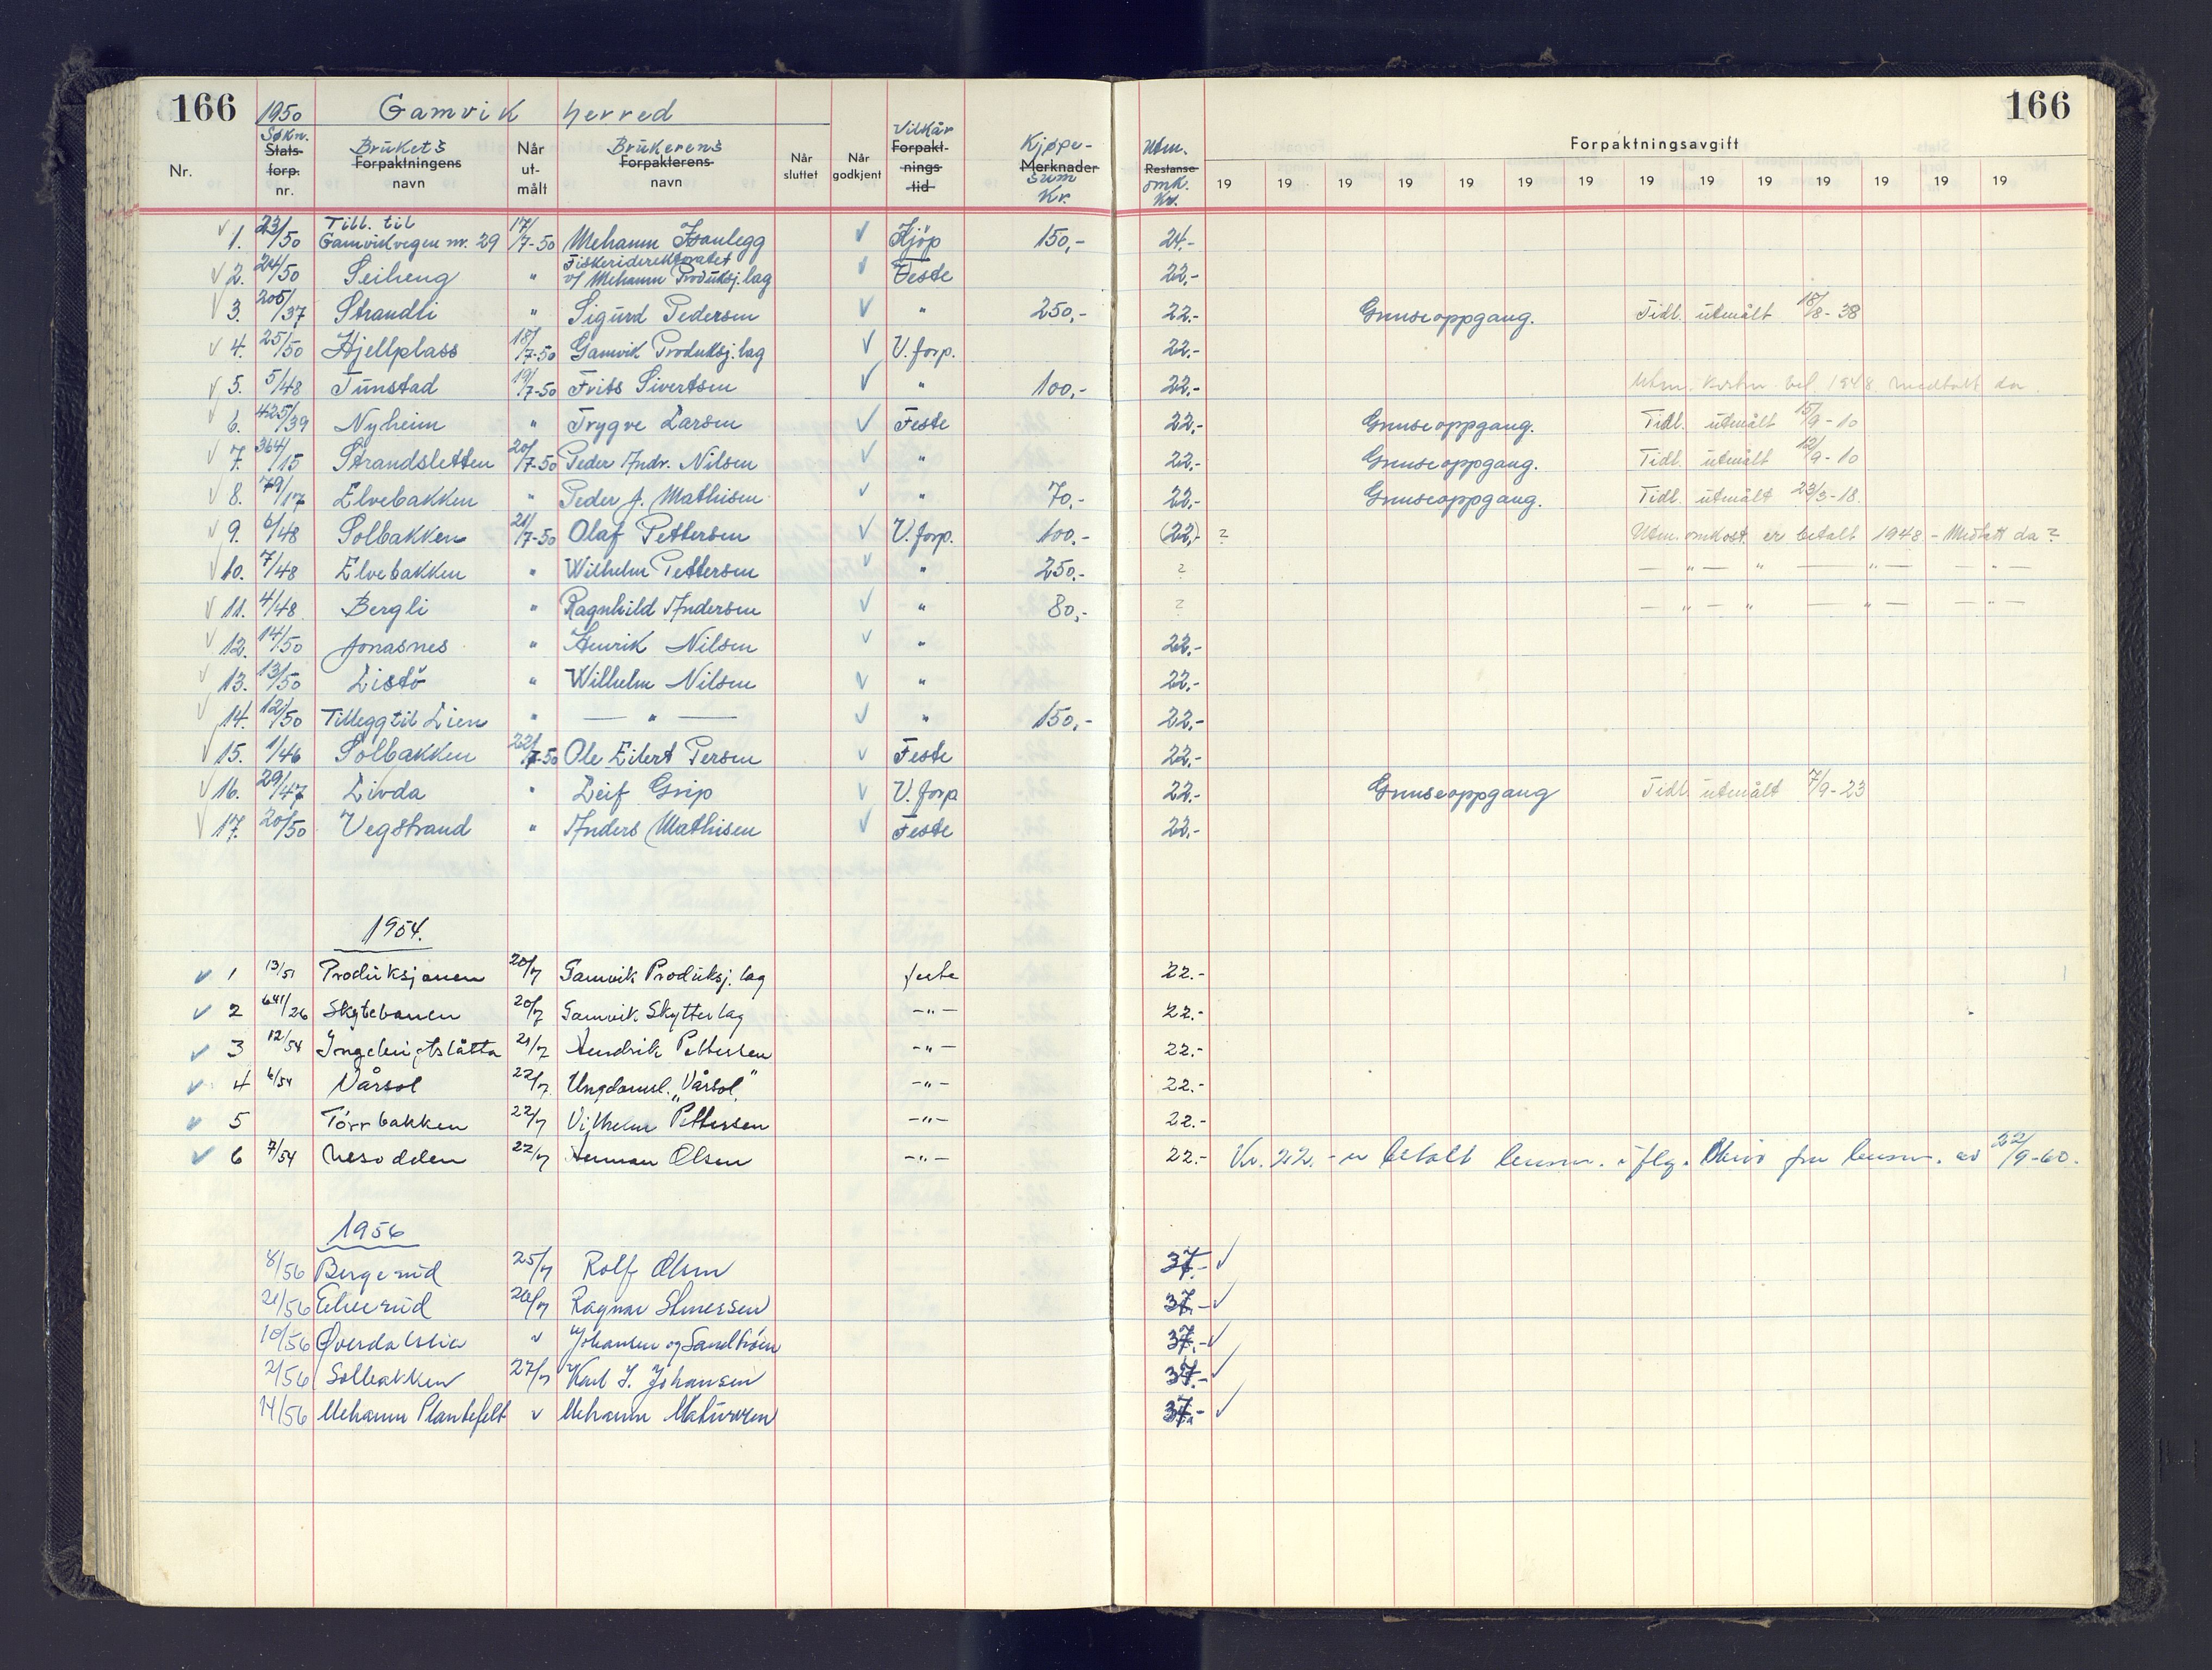 166 1950 Gamvik herred 166
Nr. Søkn. Stats- forp. nr. Brukets Forpaktningens navn Når ut- målt Brukerens Forpakterens navn Når sluttet Når godkjent Vilkår Forpakt- nings tid Kjøpe- Merknader sum Kr. Utm. Restanse omk. Kr. Forpaktningsavgift
19 19 19 19 19 19 19 19 19 19 19 19 19 19
✓ 1. 23/50 Till. til Gamvikvegen nr. 29 17/7-50 Mehamn Isanlegg ✓ Kjøp 150,- 24.-
✓ 2. 24/50 Seiheng " Fiskeridirektoratet v/ Mehamn Produksj. lag ✓ Feste 22,-
✓ 3. 205/37 Strandli " Sigurd Pedersen ✓ " 250,- 22.- Grenseoppgang. Tidl. utmålt 18/8-38
✓ 4. 25/50 Hjellplass 18/7-50 Gamvik Produksj. lag ✓ V. forp. 22.-
✓ 5. 5/48 Tunstad 19/7-50 Frits Sivertsen ✓ " 100,- 22.- Utm. 1948. medtatt da.
✓ 6. 425/39 Nyheim " Trygve Larsen ✓ Feste 22,- Grenseoppgang. Tidl. utmålt 15/9-10
✓ 7. 364/15 Strandsletten 20/7-50 Peder Andr. Nilsen ✓ " 22,- Grenseoppgang. Tidl. utmålt 12/9-10
✓ 8. 79/17 Elvebakken " Peder J. Mathisen ✓ " 70,- 22,- Grenseoppgang. Tidl. utmålt 23/3-18.
✓ 9. 6/48 Solbakken 21/7-50 Olaf Pettersen ✓ V. forp. 100.- (22,-) ? Utm. omkost. er betalt 1948 - Medtatt da?
✓ 10. 7/48 Elvebakken " Wilhelm Pettersen ✓ " 250.- ? — " — " — " — — " —
✓ 11. 4/48 Bergli " Ragnhild Andersen ✓ " 80,- ? — " — " — " — — " —
✓ 12. 14/50 Jonasnes " Henrik Nilsen ✓ " 22.-
✓ 13. 13/50 Listö " Wilhelm Nilsen ✓ " 22,-
✓ 14. 12/50 Tillegg til Lien " — " — ✓ " 150,- 22,-
✓ 15. 1/46 Solbakken 22/7-50 Ole Eilert Persen ✓ Feste 22,-
✓ 16. 29/47 Livda " Leif Grip ✓ V. forp 22.- Grenseoppgang Tidl utmålt 7/9-23
✓ 17. 20/50 Vegstrand " Anders Mathisen ✓ Feste 22.-
1954.
✓ 1 13/51 Produksjonen 20/7 Gamvik Produksj. lag feste 22.-
✓ 2 641/26 Skytebanen 20/7 Gamvik Skytterlag -"- 22.-
✓ 3 12/54 21/7 Hendrik Pettersen -"- 22.-
✓ 4 6/54 Vårsol 22/7 Ungdomsl. „Vårsol" -"- 22.-
✓ 5 Törrbakken 22/7 Vilhelm Pettersen -"- 22.-
✓ 6 7/54 Nesodden 22/7 Herman Olsen -"- 22.- Kr. 22.- er betalt lensm. iflg. skriv fra lensm. av 22/9-60.
1956
8/56 Bergerud 25/7 Rolf Olsen 37.- ✓
21/56 26/7 Ragnar 37.- ✓
10/56 Øverdalslia " Johansen og Sandtrøen 37.- ✓
2/56 Solbakken 27/7 Karl J. Johansen 37.- ✓
14/56 Mehamn Plantefelt " Mehamn 37.- ✓